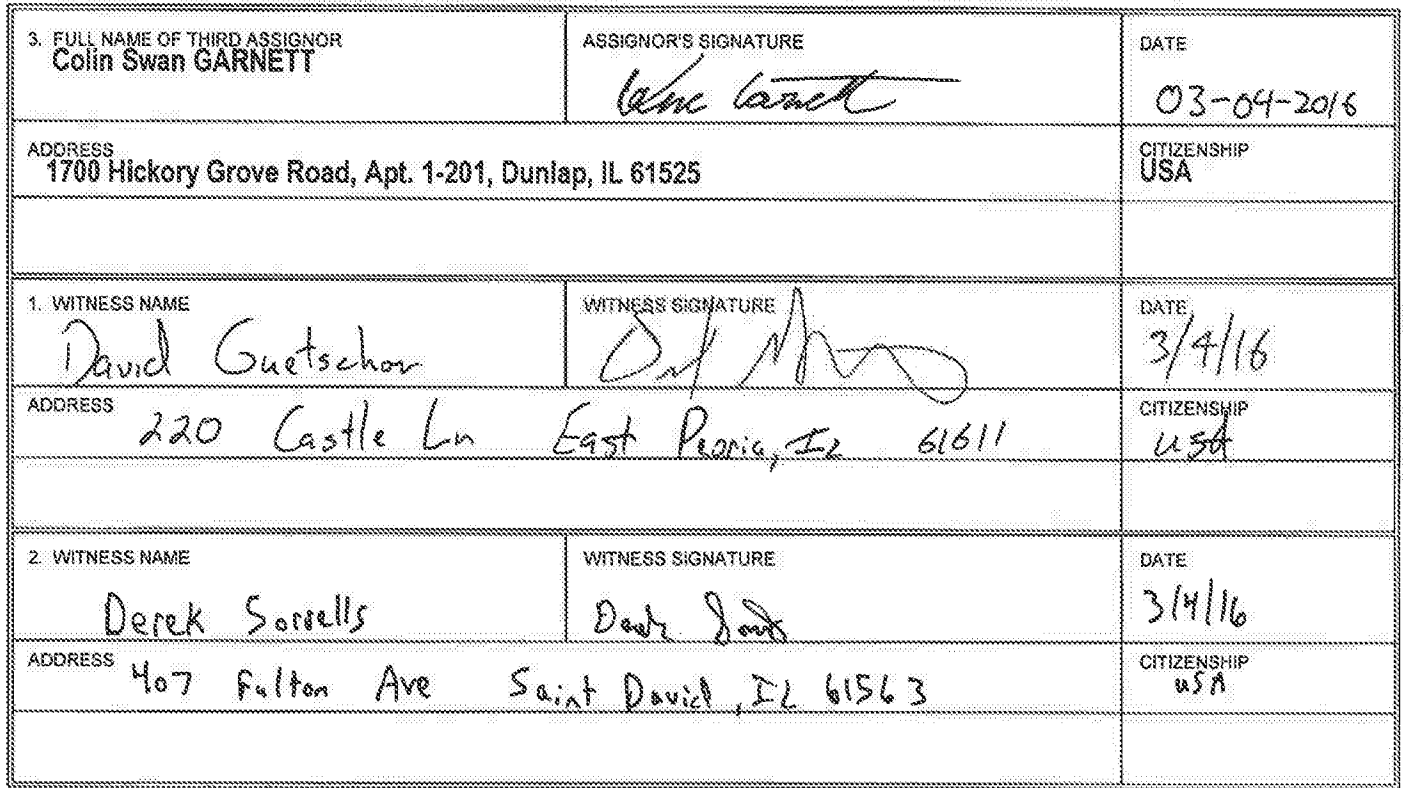 3. FULL NAME OF THIRD ASSIGNOR
Colin Swan GARNETT
ASSIGNOR'S SIGNATURE
DATE
03-04-2016
ADDRESS
1700 Hickory Grove Road, Apt. 1-201, Dunlap, IL 61525
CITIZENSHIP
USA
1. WITNESS NAME
David Guetschow
WITNESS SIGNATURE
DATE
3/4/16
ADDRESS
220 Castle Ln East Peoria, IL 61611
CITIZENSHIP
USA
2. WITNESS NAME
Derek Sorrells
WITNESS SIGNATURE
DATE
3/4/16
ADDRESS
407 Fulton Ave Saint David, IL 61563
CITIZENSHIP
USA